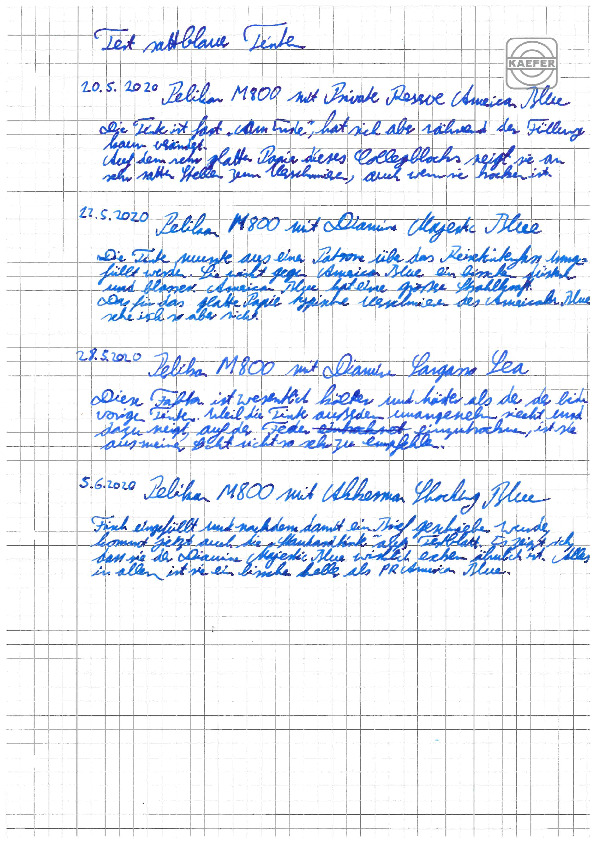 Test sattblauer Tinten
KAEFER
20.5.2020 Pelikan M800 mit Private Reserve American Blue
Die Tinte ist fast „am Ende", hat sich aber während der Füllung
kaum verändert.
Auf dem sehr glatten Papier dieses Collegeblocks neigt sie an
sehr satten Stellen zum Verschmieren, auch wenn sie trocken ist.
22.5.2020 Pelikan M800 mit Diamine Majestic Blue
Die Tinte musste aus einer Patrone über das Reisetintenfass umge-
füllt werden. Sie wirkt gegen American Blue ein bisschen
und blasser. American Blue hat eine größere
Das für das glatte Papier typische Verschmieren des American Blue
sehe ich so aber nicht.
28.5.2020 Pelikan M800 mit Diamine Sargasso Sea
Dieser Farbton ist wesentlich kälter und härter als der der beiden
vorigen Tinten. Weil die Tinte außerdem unangenehm riecht und
dazu neigt, auf der Feder einzutrocknen, ist sie
aus meiner Sicht nicht so sehr zu empfehlen.
5.6.2020 Pelikan M800 mit Akkerman Shocking Blue
Frisch eingefüllt und nachdem damit ein Brief geschrieben wurde,
kommt jetzt auch die aufs Testblatt. Es zeigt sich,
dass sie der Diamine Majestic Blue wirklich extrem ähnlich ist. Alles
in allem ist sie ein bisschen heller als PR American Blue.